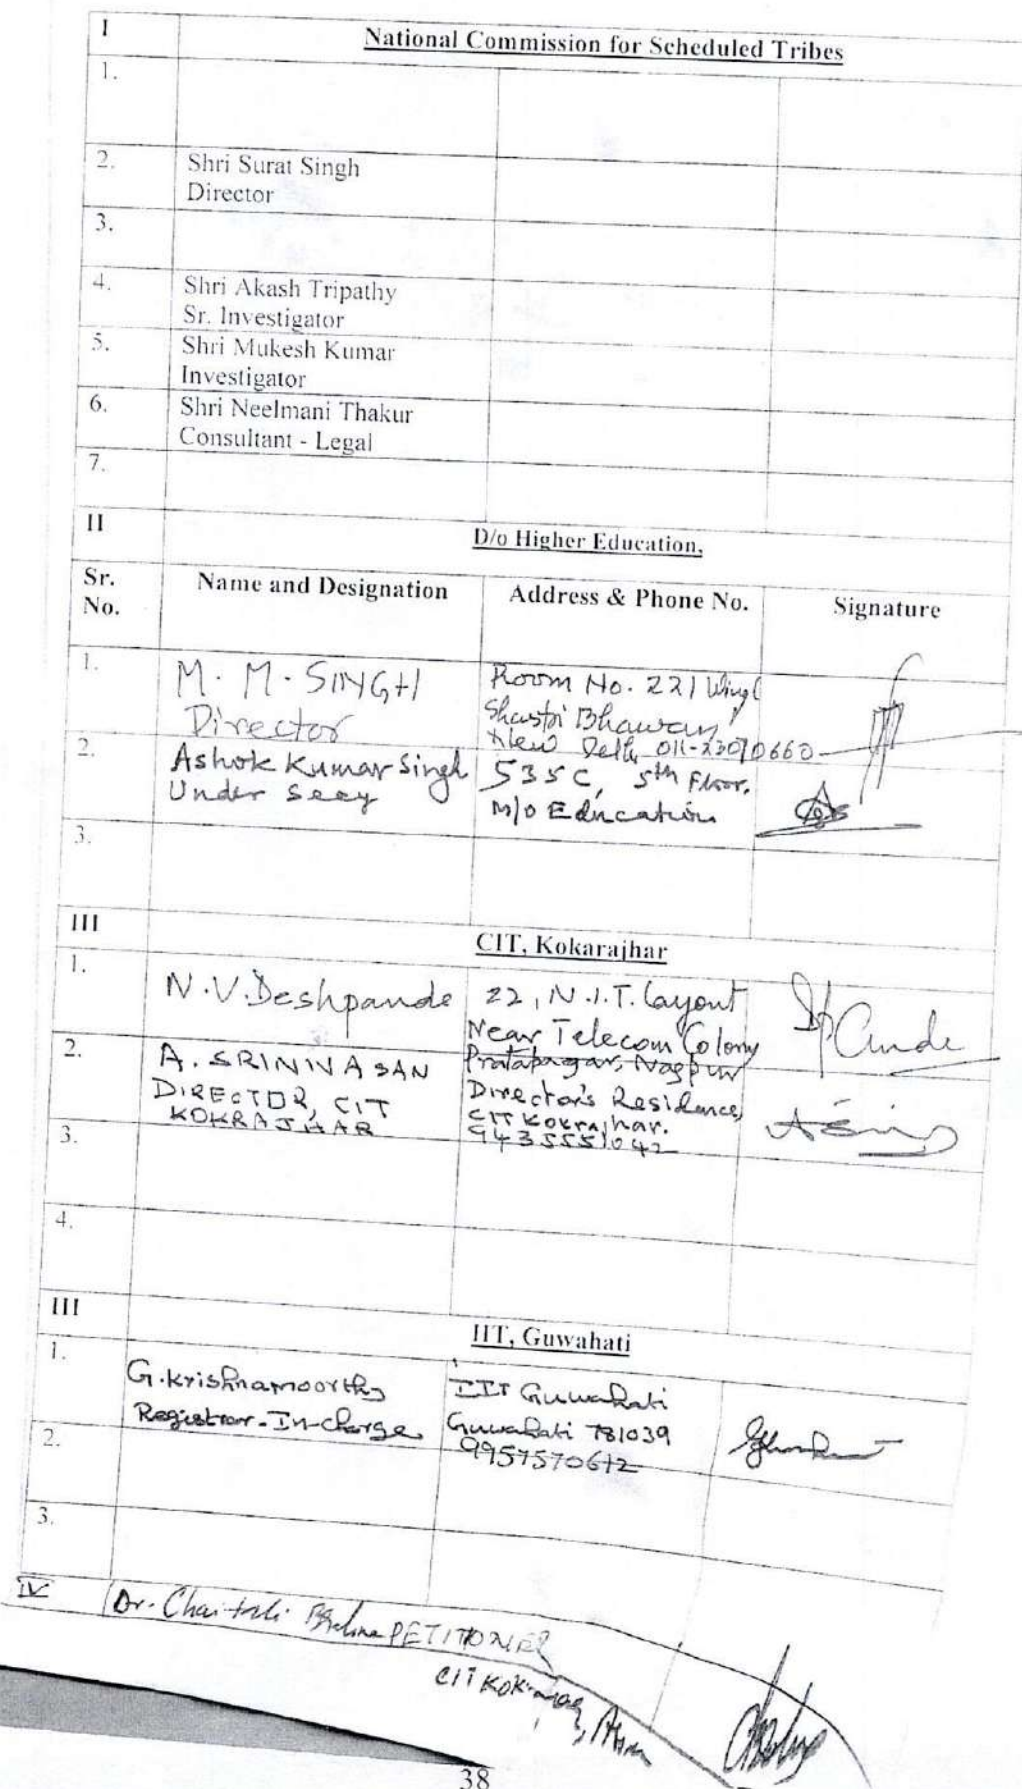 I National Commission for Scheduled Tribes
1.
2. Shri Surat Singh
Director
3.
4. Shri Akash Tripathy
Sr. Investigator
5. Shri Mukesh Kumar
Investigator
6. Shri Neelmani Thakur
Consultant - Legal
7.
II D/o Higher Education,
Sr. No. Name and Designation Address & Phone No. Signature
1. M. M. SINGH Room No. 221 Wing
Director Shastri Bhawan
New Delhi 011-23070660
2. Ashok Kumar Singh 535 C, 5th Floor.
Under Secy M/o Education
3.
III CIT, Kokarajhar
1. N.V. Deshpande 22, N.I.T. Layout
Near Telecom Colony
Pratapnagar, Nagpur
2. A. SRINIVASAN Director's Residence,
DIRECTOR, CIT CIT Kokrajhar.
KOKRAJHAR 9435551042
3.
4.
III IIT, Guwahati
1. G. Krishnamoorthy IIT Guwahati
Registrar-In-charge Guwahati 781039
2. 9957570672
3.
IV Dr. Chaitali Brahma PETITIONER
CIT Kokrajhar, Assam
38